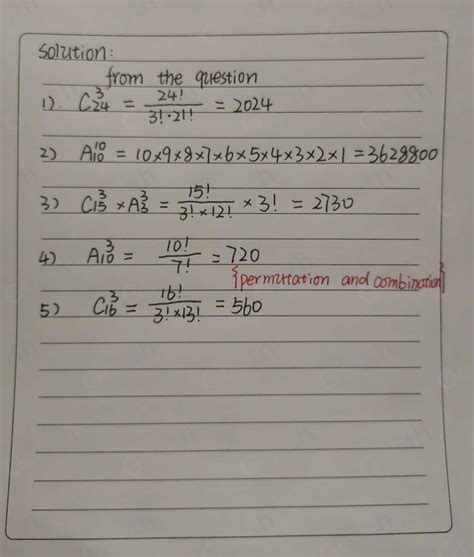 Solution:
from the question
1). C₂₄³ = 24! / 3!·21! = 2024
2) A₁₀¹⁰ = 10×9×8×7×6×5×4×3×2×1 = 3628800
3) C₁₅³ × A₃³ = 15! / 3!×12! × 3! = 2730
4) A₁₀³ = 10! / 7! = 720
{permuttation and combination}
5) C₁₆³ = 16! / 3!×13! = 560